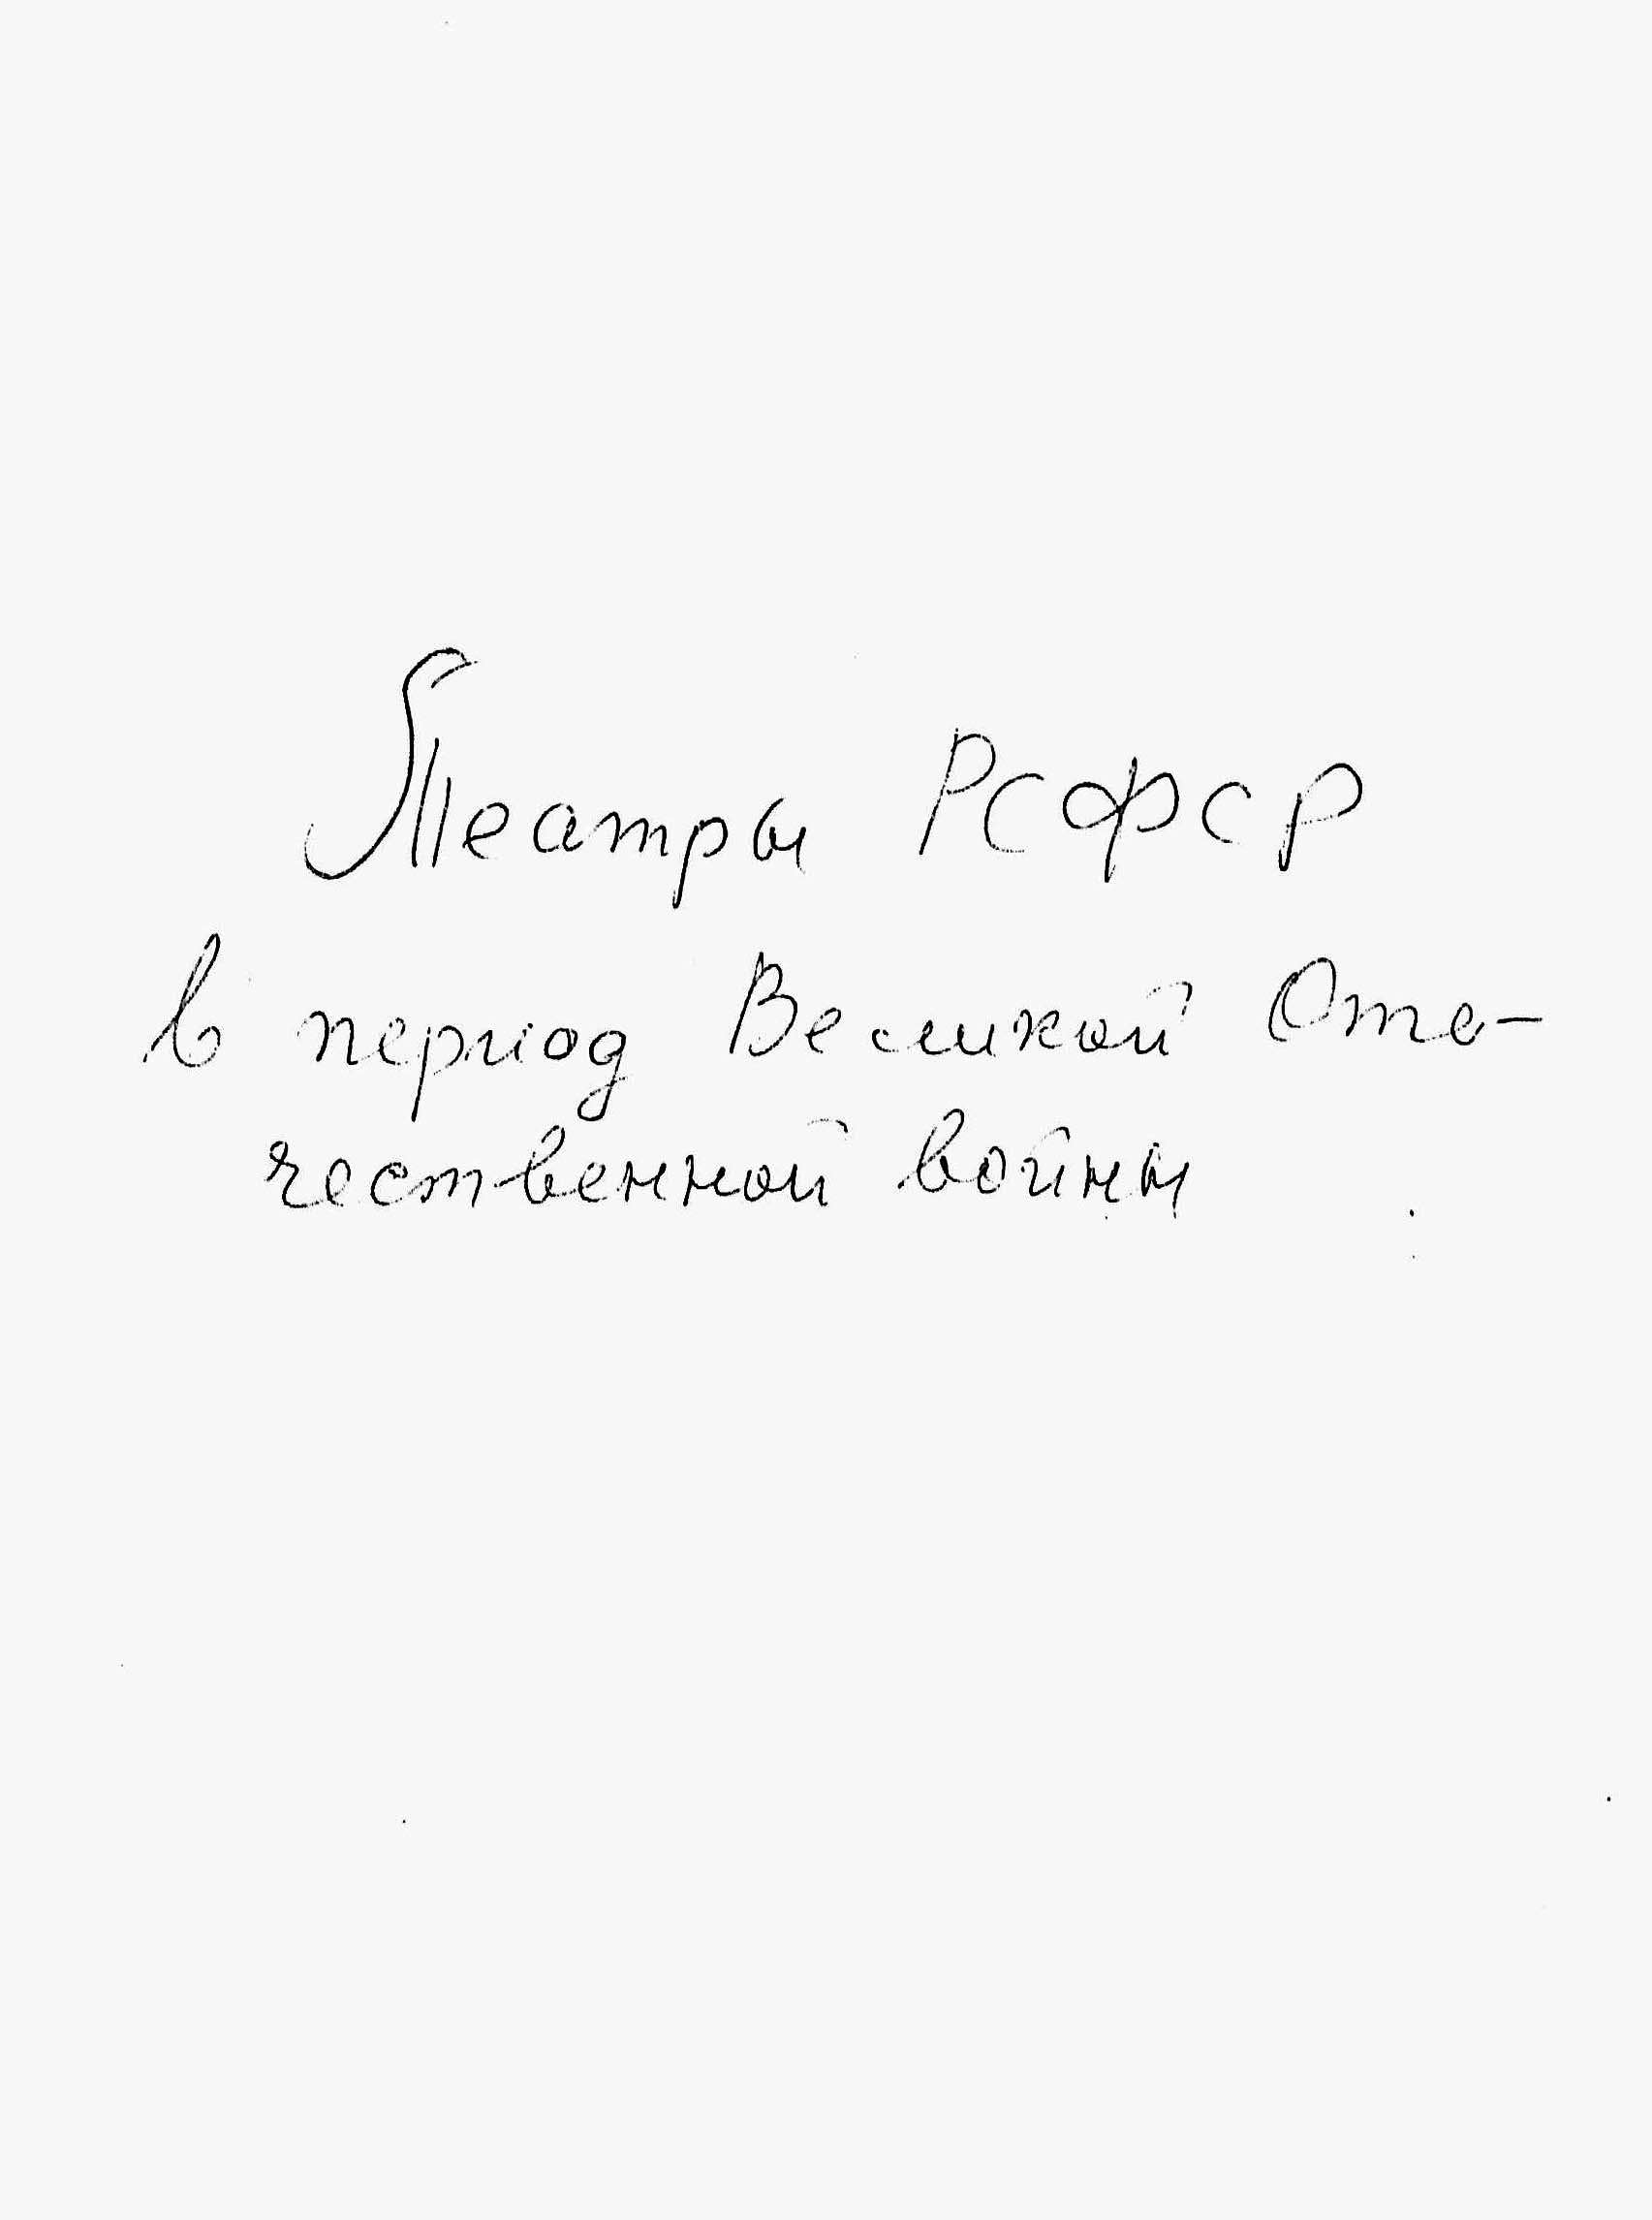 Театры РСФСР
в период Великой Оте-
чественной войны